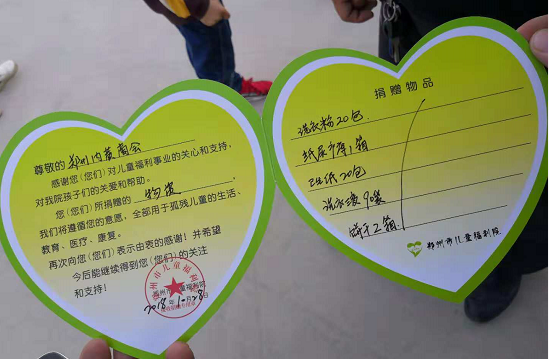 尊敬的郑州内黄商会
感谢您(您们)对儿童福利事业的关心和支持,
对我院孩子们的关爱和帮助。
您(您们)所捐赠的 物资
我们将遵循您的意愿、全部用于孤残儿童的生活、
教育、医疗、康复。
再次向您(您们)表示由衷的感谢!并希望
今后能继续得到您(您们)的关注
和支持!
郑州市儿童福利院
2018年10月28日
捐赠物品
洗衣粉20包
纸尿裤1箱
卫生纸20包
洗衣液90袋
饼干2箱
郑州市儿童福利院